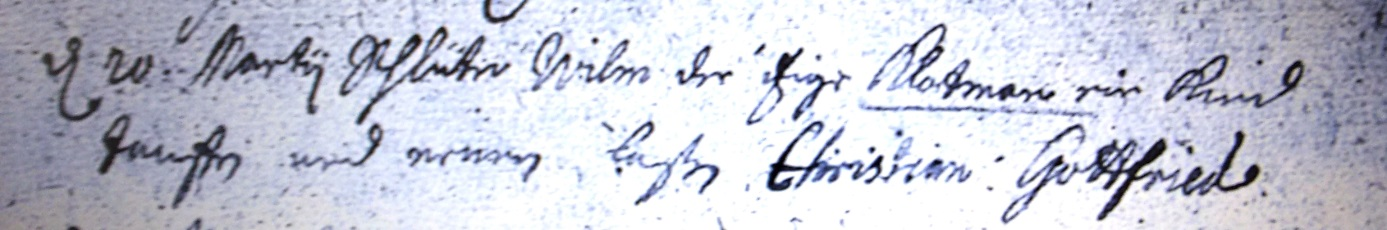 d 20. Martij Schlüter Wilm der itzige Plotman ein Kind
tauffen und nennen laßen Christian Gottfried.